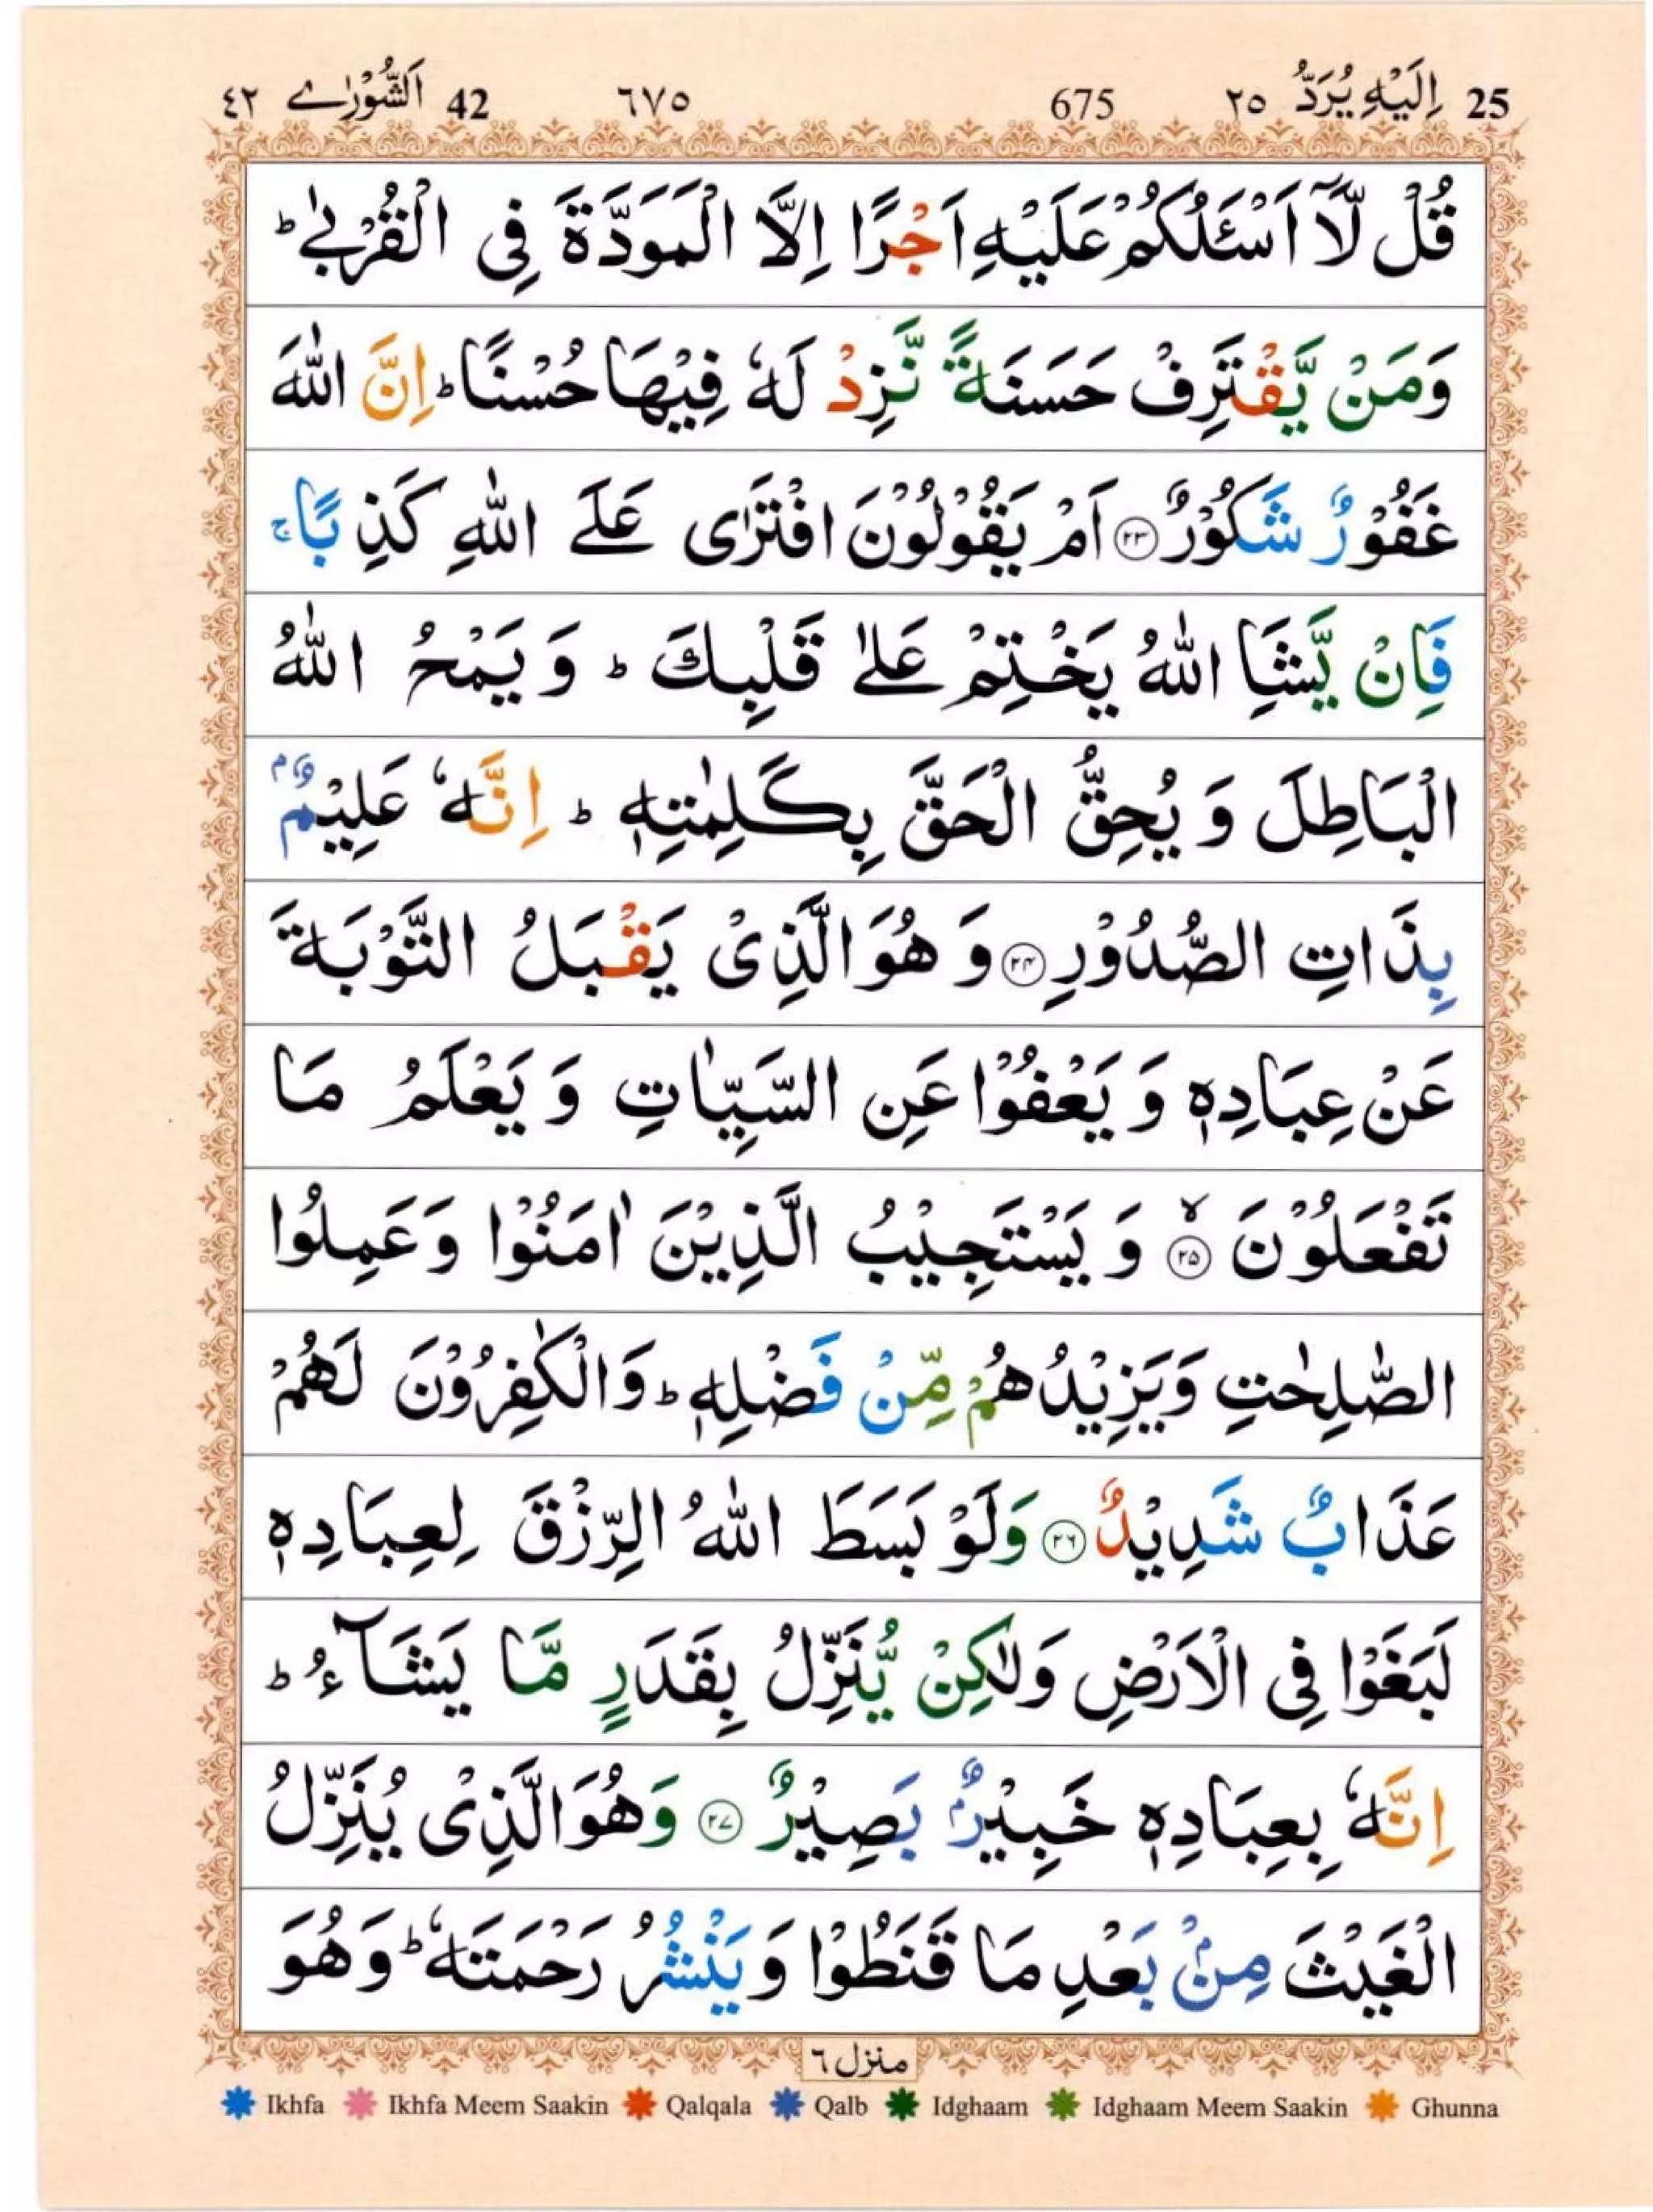 25 اِلَيْهِ يُرَدُّ ٢٥ 675 ٦٧٥ 42 اَلشُّوْرٰے ٤٢
قُلْ لَّاۤ اَسْـَٔلُكُمْ عَلَيْهِ اَجْرًا اِلَّا الْمَوَدَّةَ فِى الْقُرْبٰىؕ
وَمَنْ يَّقْتَرِفْ حَسَنَةً نَّزِدْ لَهٗ فِيْهَا حُسْنًاؕ اِنَّ اللّٰهَ
غَفُوْرٌ شَكُوْرٌ ﴿۲۳﴾ اَمْ يَقُوْلُوْنَ افْتَرٰى عَلَى اللّٰهِ كَذِبًاۚ
فَاِنْ يَّشَاِ اللّٰهُ يَخْتِمْ عَلٰى قَلْبِكَؕ وَ يَمْحُ اللّٰهُ
الْبَاطِلَ وَ يُحِقُّ الْحَقَّ بِكَلِمٰتِهٖؕ اِنَّهٗ عَلِيْمٌۢ
بِذَاتِ الصُّدُوْرِ ﴿۲۴﴾ وَ هُوَ الَّذِىْ يَقْبَلُ التَّوْبَةَ
عَنْ عِبَادِهٖ وَ يَعْفُوْا عَنِ السَّيِّاٰتِ وَ يَعْلَمُ مَا
تَفْعَلُوْنَ ۙ﴿۲۵﴾ وَ يَسْتَجِيْبُ الَّذِيْنَ اٰمَنُوْا وَعَمِلُوا
الصّٰلِحٰتِ وَيَزِيْدُهُمْ مِّنْ فَضْلِهٖؕ وَالْكٰفِرُوْنَ لَهُمْ
عَذَابٌ شَدِيْدٌ ﴿۲۶﴾ وَلَوْ بَسَطَ اللّٰهُ الرِّزْقَ لِعِبَادِهٖ
لَبَغَوْا فِى الْاَرْضِ وَلٰكِنْ يُّنَزِّلُ بِقَدَرٍ مَّا يَشَآءُؕ
اِنَّهٗ بِعِبَادِهٖ خَبِيْرٌۢ بَصِيْرٌ ﴿۲۷﴾ وَهُوَ الَّذِىْ يُنَزِّلُ
الْغَيْثَ مِنْۢ بَعْدِ مَا قَنَطُوْا وَ يَنْشُرُ رَحْمَتَهٗؕ وَهُوَ
منزل ٦
Ikhfa Ikhfa Meem Saakin Qalqala Qalb Idghaam Idghaam Meem Saakin Ghunna